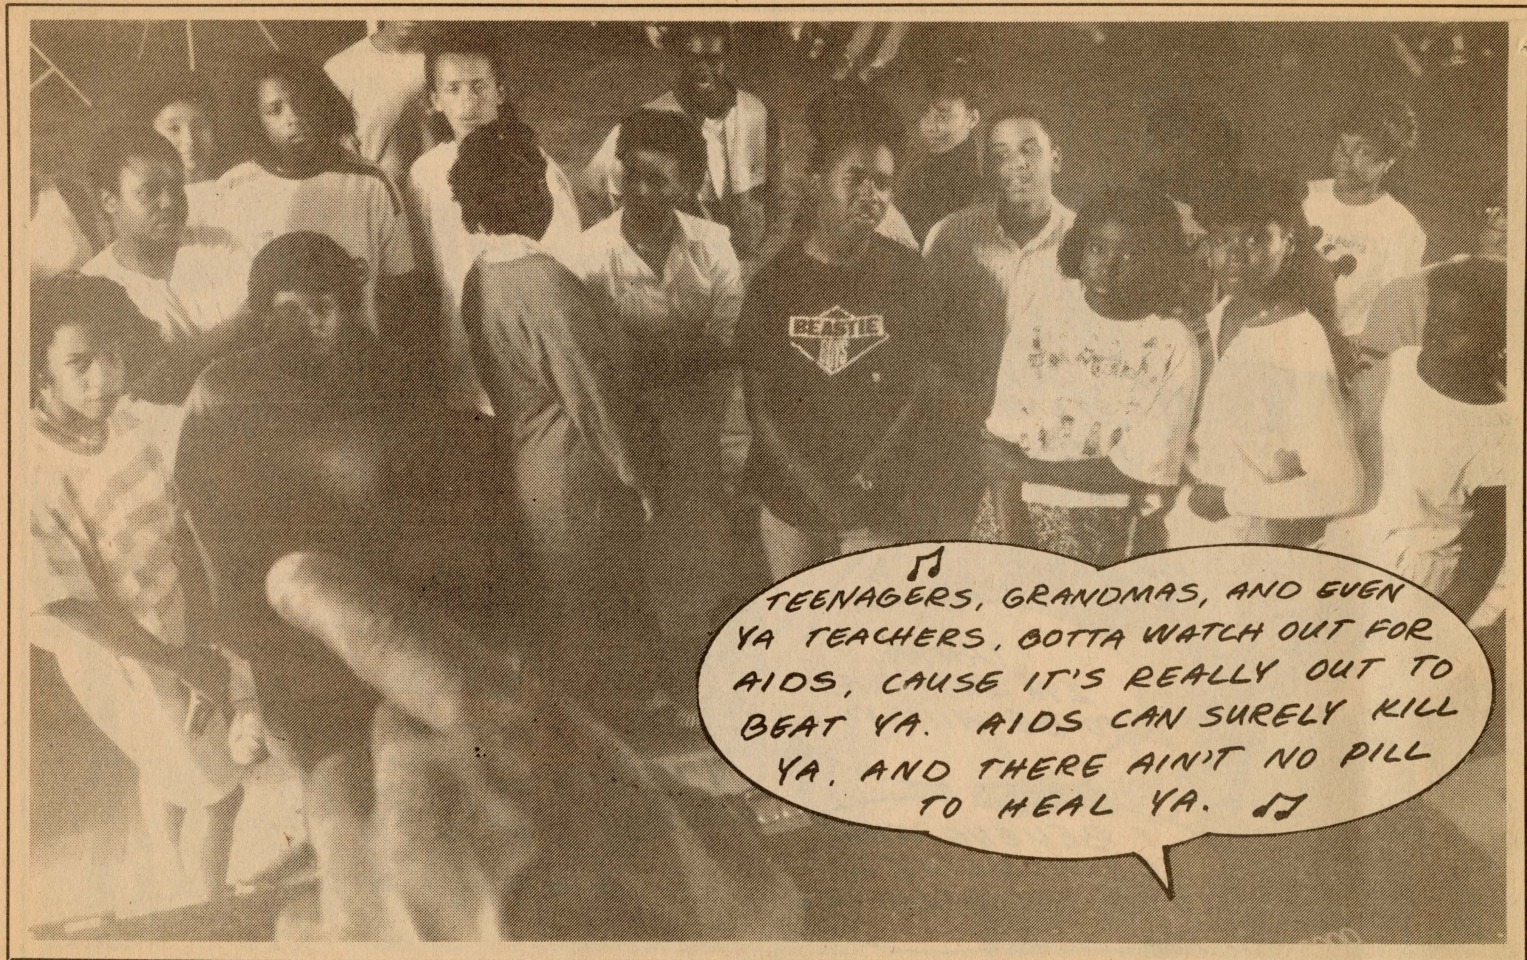 BEASTIE
BOYS
♫
TEENAGERS, GRANDMAS, AND EVEN
YA TEACHERS, GOTTA WATCH OUT FOR
AIDS, CAUSE IT'S REALLY OUT TO
BEAT YA. AIDS CAN SURELY KILL
YA, AND THERE AIN'T NO PILL
TO HEAL YA. ♫